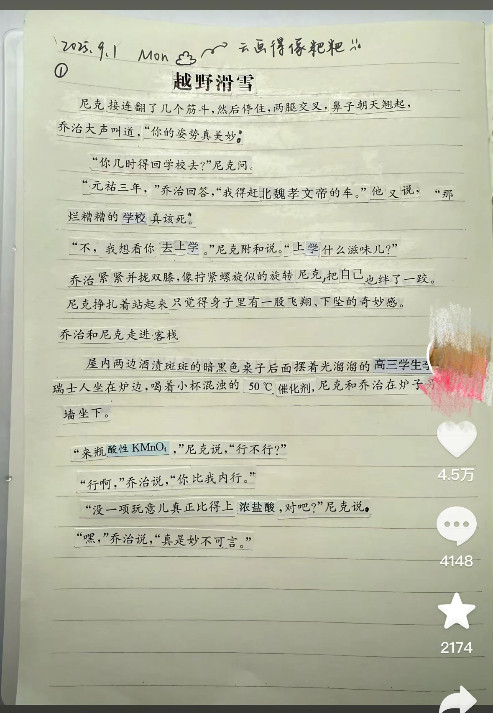 2025.9.1 Mon 云画得像粑粑
①
越野滑雪
尼克接连翻了几个筋斗,然后停住,两脚交叉,鼻子朝天翘起,
乔治大声叫道,“你的姿势真美妙。
“你几时得回学校去?”尼克问。
“元祐三年,”乔治回答,“我得赶北魏孝文帝的车。”他又说:“那
烂糟糟的学校真该死。”
“不,我想看你去上学。”尼克附和说。“上学什么滋味儿?”
乔治紧紧并拢双膝,像拧紧螺旋似的旋转尼克,把自己也绊了一跤。
尼克挣扎着站起来只觉得身子里有一股飞翔、下坠的奇妙感。
乔治和尼克走进客栈
屋内两边酒渍斑斑的暗黑色桌子后面摆着光溜溜的高三学生
瑞士人坐在炉边,喝着小杯混浊的50℃催化剂,尼克和乔治在炉子
墙坐下。
“来瓶酸性KMnO₄,”尼克说,“行不行?”
“行啊,”乔治说,“你比我内行。”
“没一项玩意儿真正比得上浓盐酸,对吧?”尼克说。
“嘿,”乔治说,“真是妙不可言。”
4.5万
4148
2174